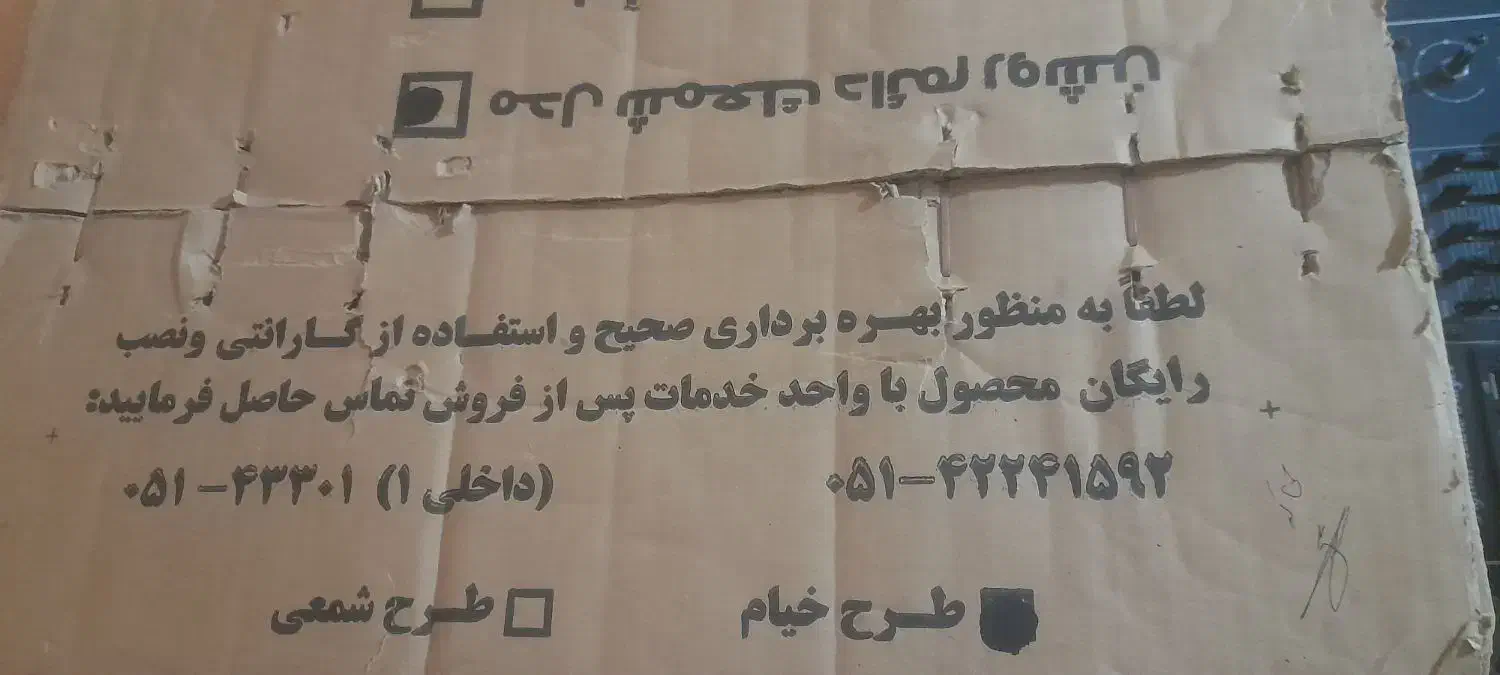 مدل شمعک دائم روشن
لطفاً به منظور بهـره برداری صحیح و استفـاده از گـارانتی ونصب
رایگان محصول با واحد خدمات پس از فروش تماس حاصل فرمایید:
۰۵۱-۴۲۲۴۱۵۹۲
(داخلی ۱) ۴۳۳۰۱ - ۰۵۱
طـرح خیام
طـرح شمعی